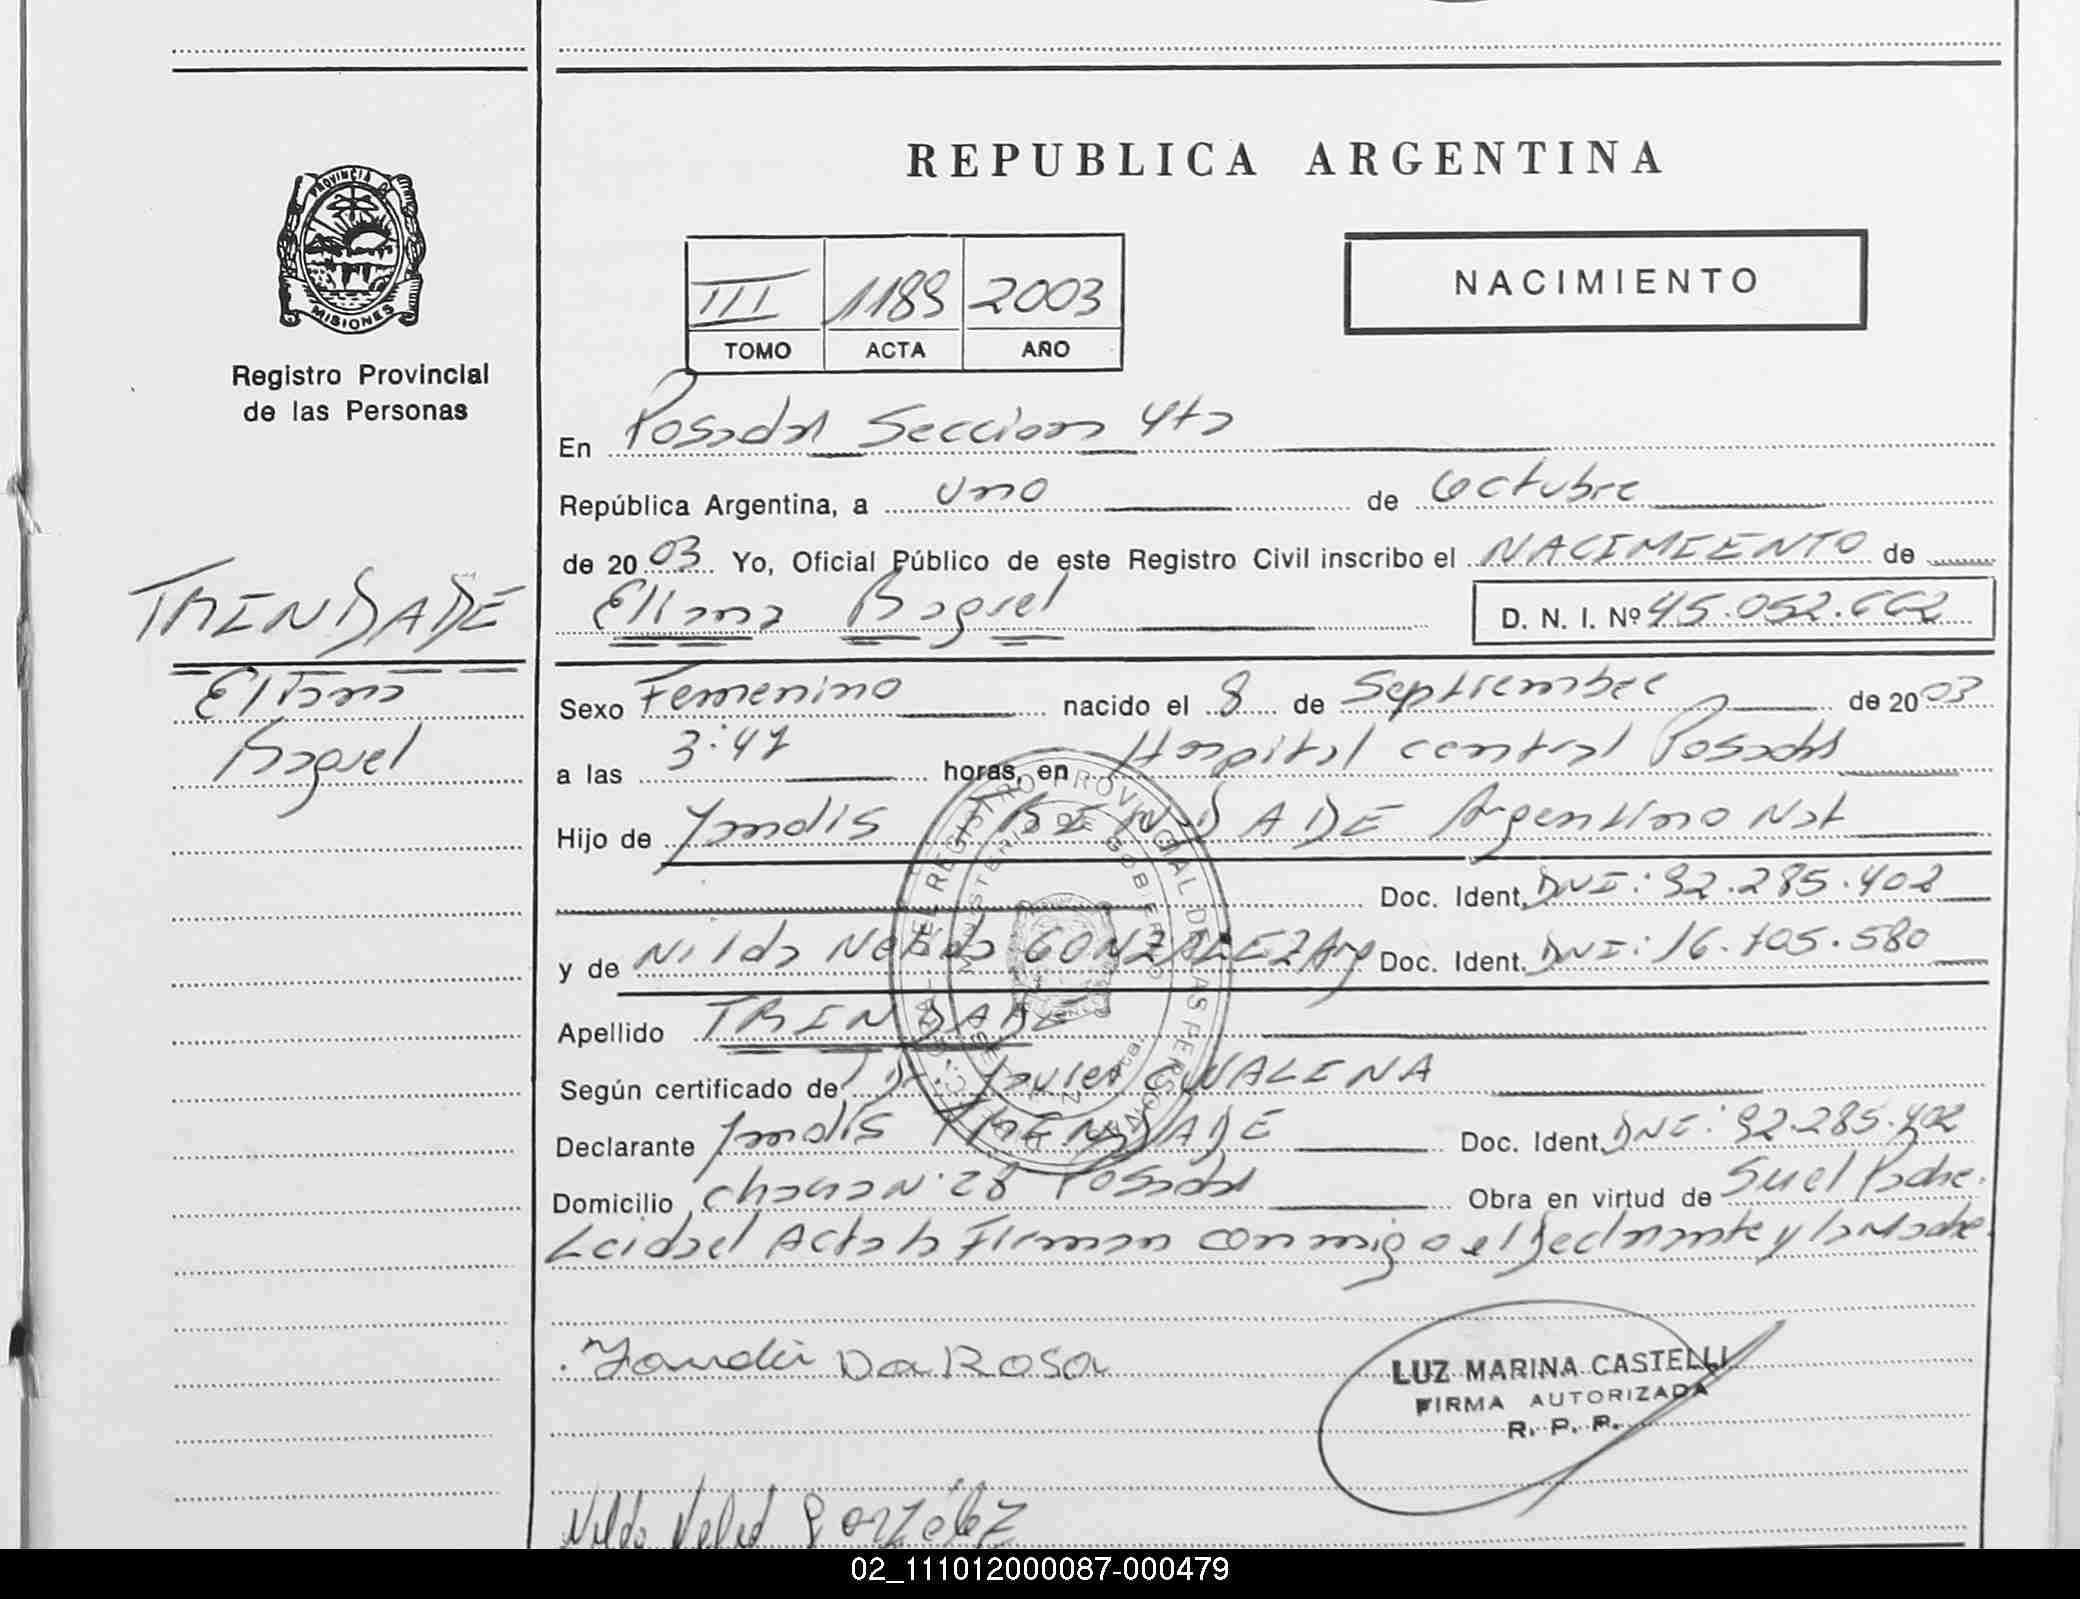 REPUBLICA ARGENTINA
PROVINCIA DE
MISIONES
Registro Provincial
de las Personas
III 1189 2003
TOMO ACTA AÑO
NACIMIENTO
En Posadas Seccion 4ta
República Argentina, a uno de Octubre
de 2003 Yo, Oficial Público de este Registro Civil inscribo el NACIMIENTO de
Eliana Raquel D. N. I. Nº 45.052.662
TRINDADE
Eliana
Raquel
Sexo Femenino nacido el 8 de Septiembre de 2003
a las 3:47 horas, en Hospital central Posadas
Hijo de Yandis TRINDADE Argentino Nat
Doc. Ident. DNI: 92.285.402
y de Nilda Nelida GONZALEZ Arg Doc. Ident. DNI: 16.105.580
Apellido TRINDADE
Según certificado de Dr. Javier
Declarante Yandis TRINDADE Doc. Ident. DNI: 92.285.402
Domicilio chacra N: 28 Posadas Obra en virtud de Su el Padre.
Leida el Acta la Firman conmigo el Declarante y la Madre.
Yandir Da Rosa
LUZ MARINA CASTELLI
FIRMA AUTORIZADA
R. P. P.
Nilda Nelid González
02_111012000087-000479